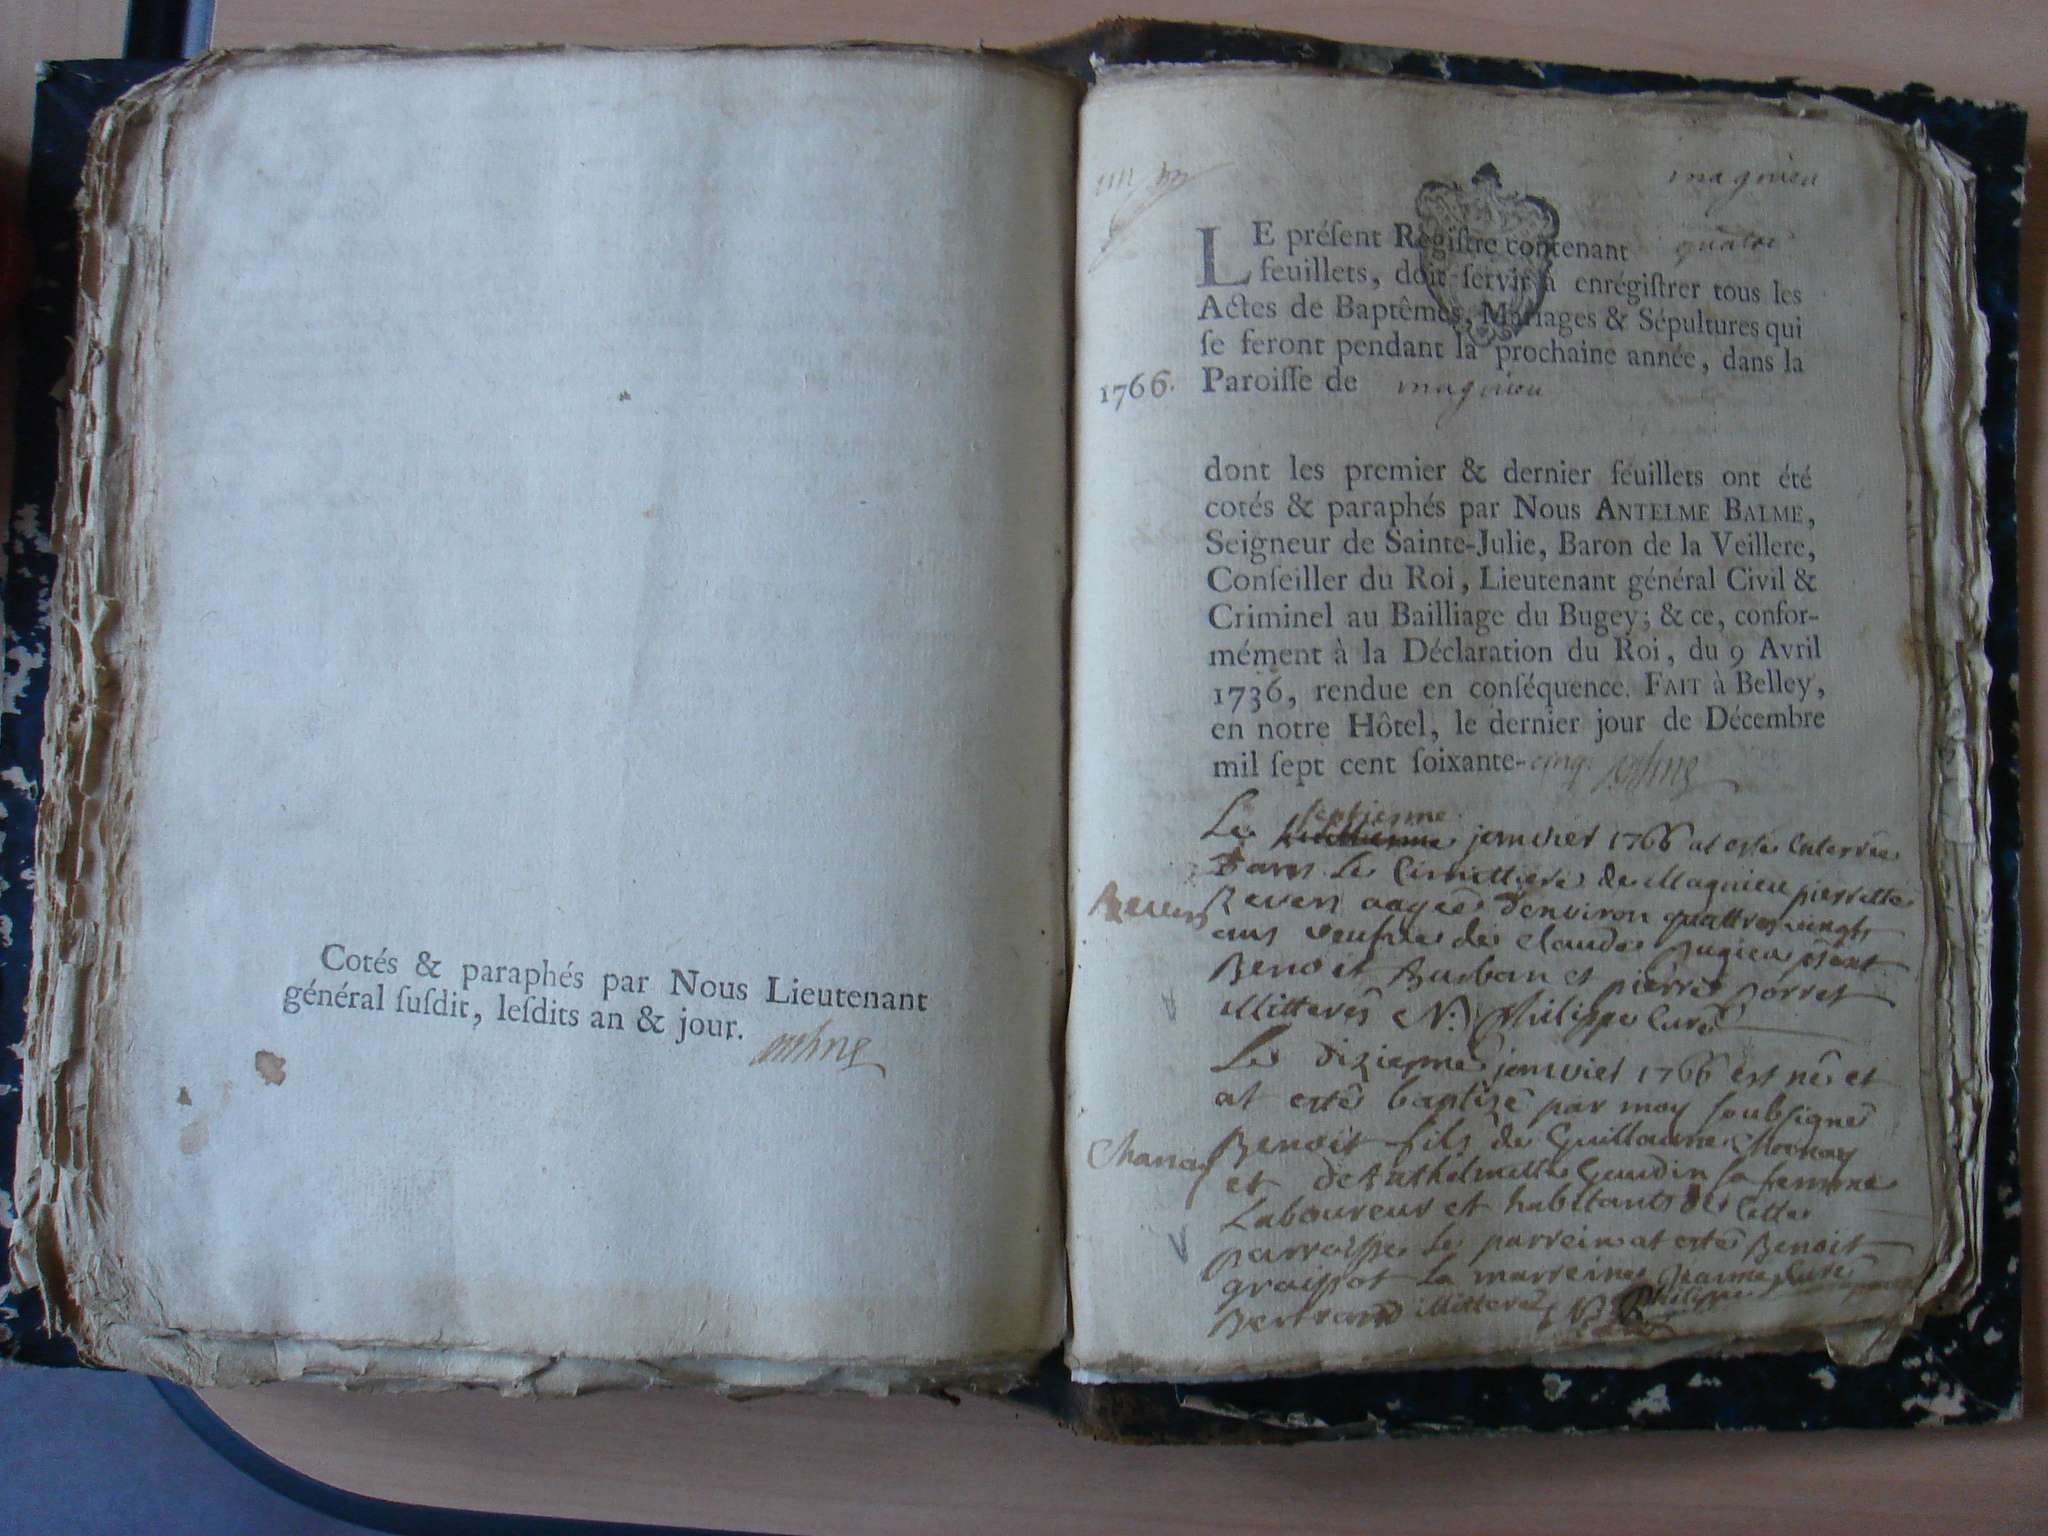 Cotés & paraphés par Nous Lieutenant
général ſuſdit, leſdits an & jour.
magnieu
LE préſent Regiſtre contenant quatre
feuillets, doit ſervir à enrégiſtrer tous les
Actes de Baptêmes, Mariages & Sépultures qui
ſe feront pendant la prochaine année, dans la
1766. Paroiſſe de magnieu
dont les premier & dernier feuillets ont été
cotés & paraphés par Nous ANTELME BALME,
Seigneur de Sainte-Julie, Baron de la Veillere,
Conſeiller du Roi, Lieutenant général Civil &
Criminel au Bailliage du Bugey; & ce, confor-
mément à la Déclaration du Roi, du 9 Avril
1736, rendue en conſéquence. FAIT à Belley,
en notre Hôtel, le dernier jour de Décembre
mil ſept cent ſoixante-cinq.
septieme
Le janvier 1766 at esté enterrée
Dans le Cimittiere de Magnieu pierrette
Reven Reven aagée d'environ quattre vingts
ans veufve de Claude Pugieu présent
Benoit Burban et pierre Porret
illitteres N. Philippe Curé
Le dizieme janvier 1766 est né et
at esté baptizé par moy soubsigné
Chanay Benoit fils de Guillaume Chanay
et de Anthelmette Gaudin sa femme
Laboureur et habitants de Cette
parroisse le parrein at esté Benoit
graissot la marreine Jeanne
Bertrand illitteres N. Philippe Curé